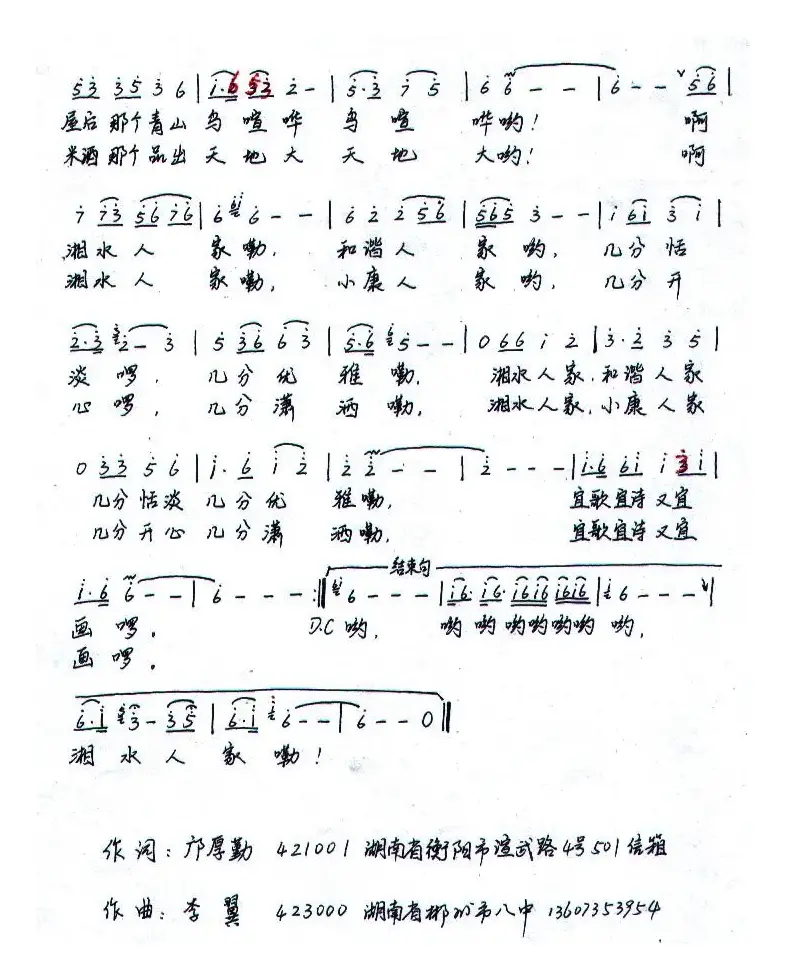 5 3 3 5 3 6 | i·6 5 3 2 - | 5·3 7 5 | 6 6 - - | 6 - - 5 6 |
屋后 那个青山 鸟喧哗 鸟喧 哗哟! 啊
米酒 那个品出 天地大 天地 大哟! 啊
7 7 3 5 6 7 6 | 6 6 - - | 6 2 2 5 6 | 5 6 5 3 - - | i 6 i 3 i |
湘水人 家嘞, 和谐人 家哟, 几分恬
湘水人 家嘞, 小康人 家哟, 几分开
2·3 2 - 3 | 5 3 6 6 3 | 5·6 5 - - | 0 6 6 i 2 | 3·2 3 5 |
淡啰, 几分优 雅嘞, 湘水人家,和谐人家
心啰, 几分潇 洒嘞, 湘水人家,小康人家
0 3 3 5 6 | i·6 i 2 | 2 2 - - | 2 - - - | i·6 6 i i 3 i |
几分恬淡 几分优 雅嘞, 宜歌宜诗又宜
几分开心 几分潇 洒嘞, 宜歌宜诗又宜
结束句
i·6 6 - - | 6 - - - :|| 6 - - - | i 6· i 6· i 6 i 6 i 6 i 6 | 6 - - - |
画啰。 D.C 哟, 哟哟哟哟哟哟 哟,
画啰。
6·i 3 - 3 5 | 6·i 6 - - | 6 - - 0 ||
湘水人 家嘞!
作词: 邝厚勤 421001 湖南省衡阳市 武路4号501信箱
作曲: 李翼 423000 湖南省郴州市八中 13607353954